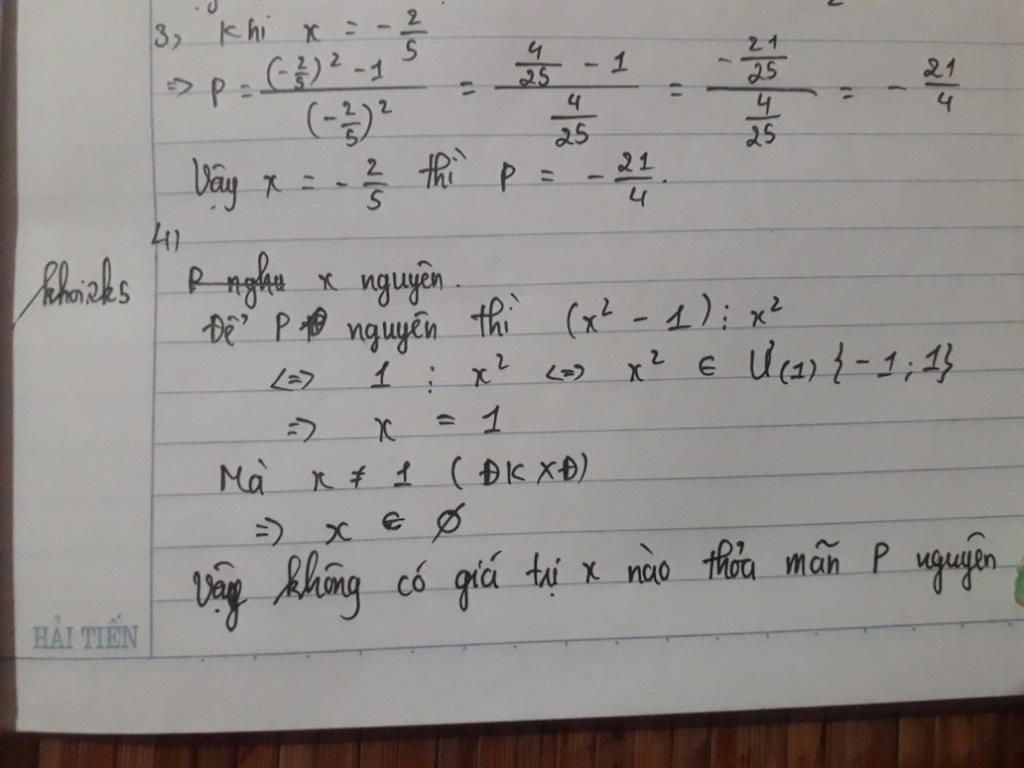 3, Khi x = - 2/5
=> P = ((-2/5)² - 1)/((-2/5)²) = (4/25 - 1)/(4/25) = (-21/25)/(4/25) = - 21/4
Vậy x = - 2/5 thì P = - 21/4.
4)
khoi2k5
x nguyên.
Để P nguyên thì (x² - 1) ⋮ x²
<=> 1 ⋮ x² <=> x² ∈ Ư(1) {-1; 1}
=> x = 1
Mà x ≠ 1 (ĐKXĐ)
=> x ∈ ∅
Vậy không có giá trị x nào thỏa mãn P nguyên
HẢI TIẾN